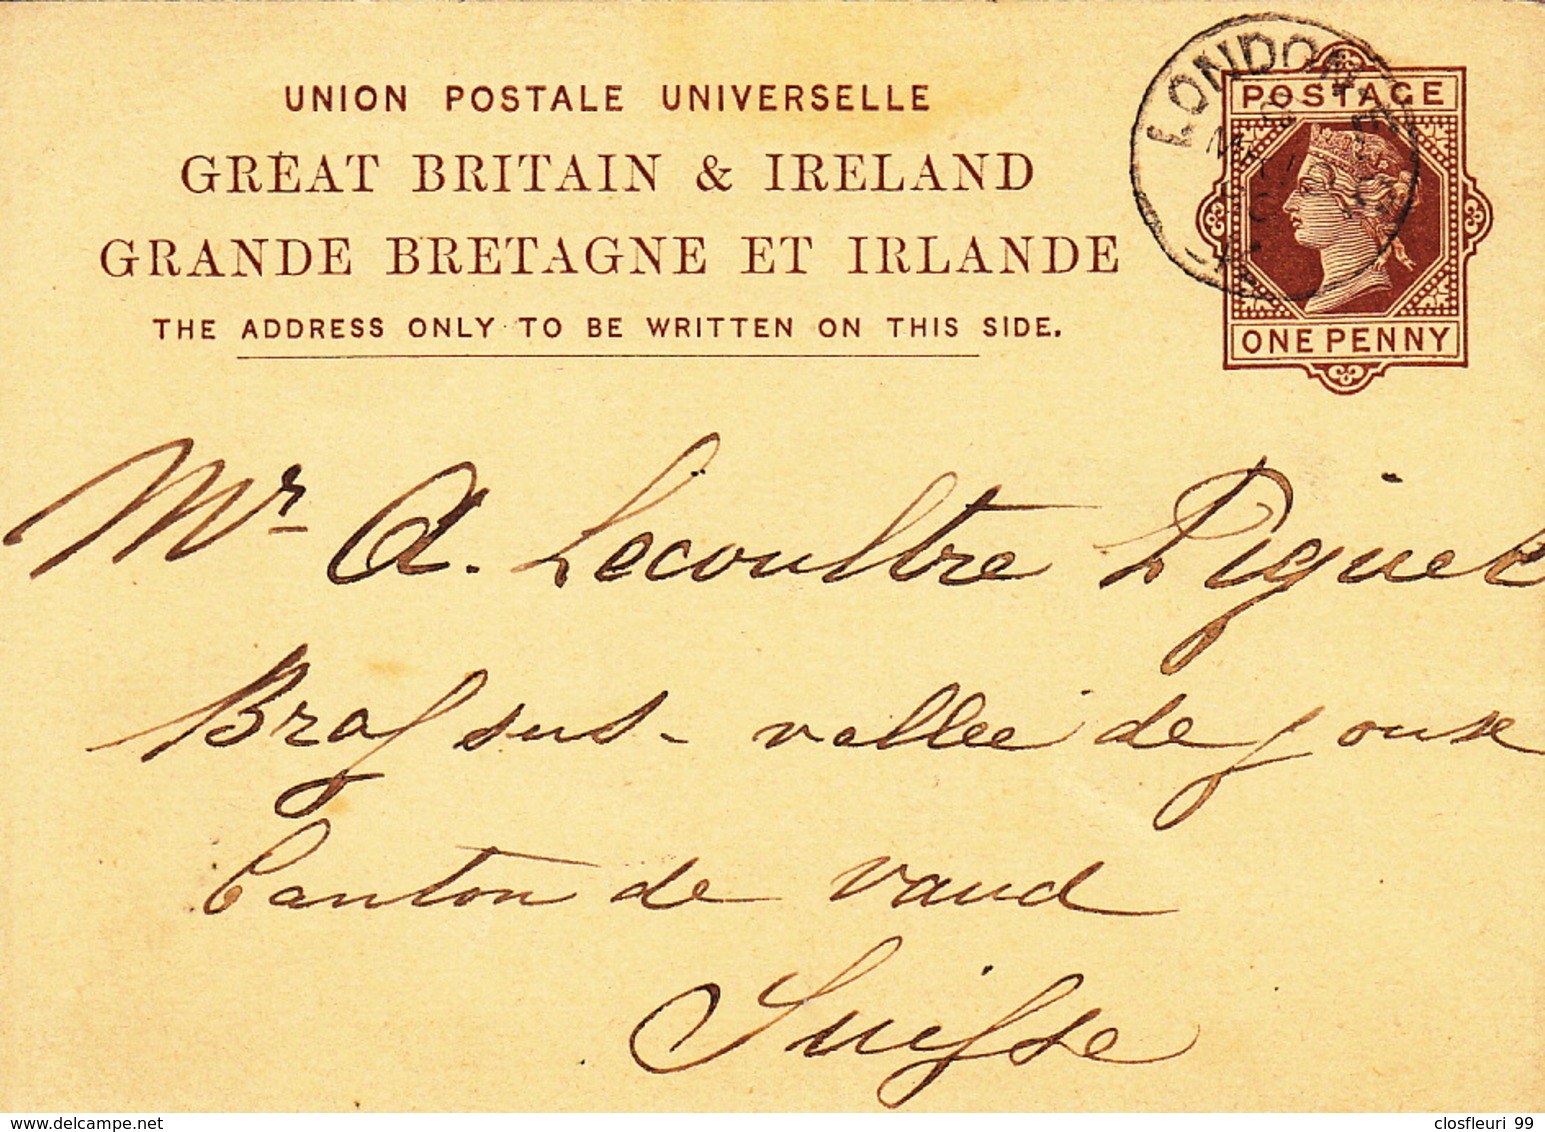 UNION POSTALE UNIVERSELLE
GREAT BRITAIN & IRELAND
GRANDE BRETAGNE ET IRLANDE
THE ADDRESS ONLY TO BE WRITTEN ON THIS SIDE.
LONDON
POSTAGE
ONE PENNY
Mr A. Lecoultre Piguet
Brassus - vallée de Joux
Canton de Vaud
Suisse
delcampe.net
closfleuri 99